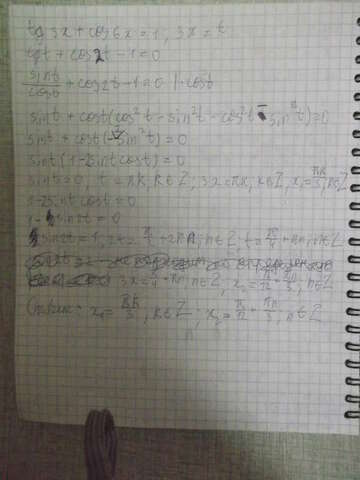 tg 3x + cos 6x = 1, 3x = t
tgt + cos2t - 1 = 0
sint/cost + cos2t - 1 = 0 | · cost
sint + cost(cos²t - sin²t - cos²t - sin²t) = 0
sint + cost(-2sin²t) = 0
sint(1 - 2sintcost) = 0
sint = 0, t = πk, k∈Z; 3x = πk, k∈Z, x₁ = πk/3, k∈Z
1 - 2sintcost = 0
1 - sin2t = 0
sin2t = 1, 2t = π/2 + 2πn, n∈Z; t = π/4 + πn, n∈Z
3x = π/4 + πn, n∈Z; x₂ = π/12 + πn/3, n∈Z
Ответ: x₁ = πk/3, k∈Z; x₂ = π/12 + πn/3, n∈Z